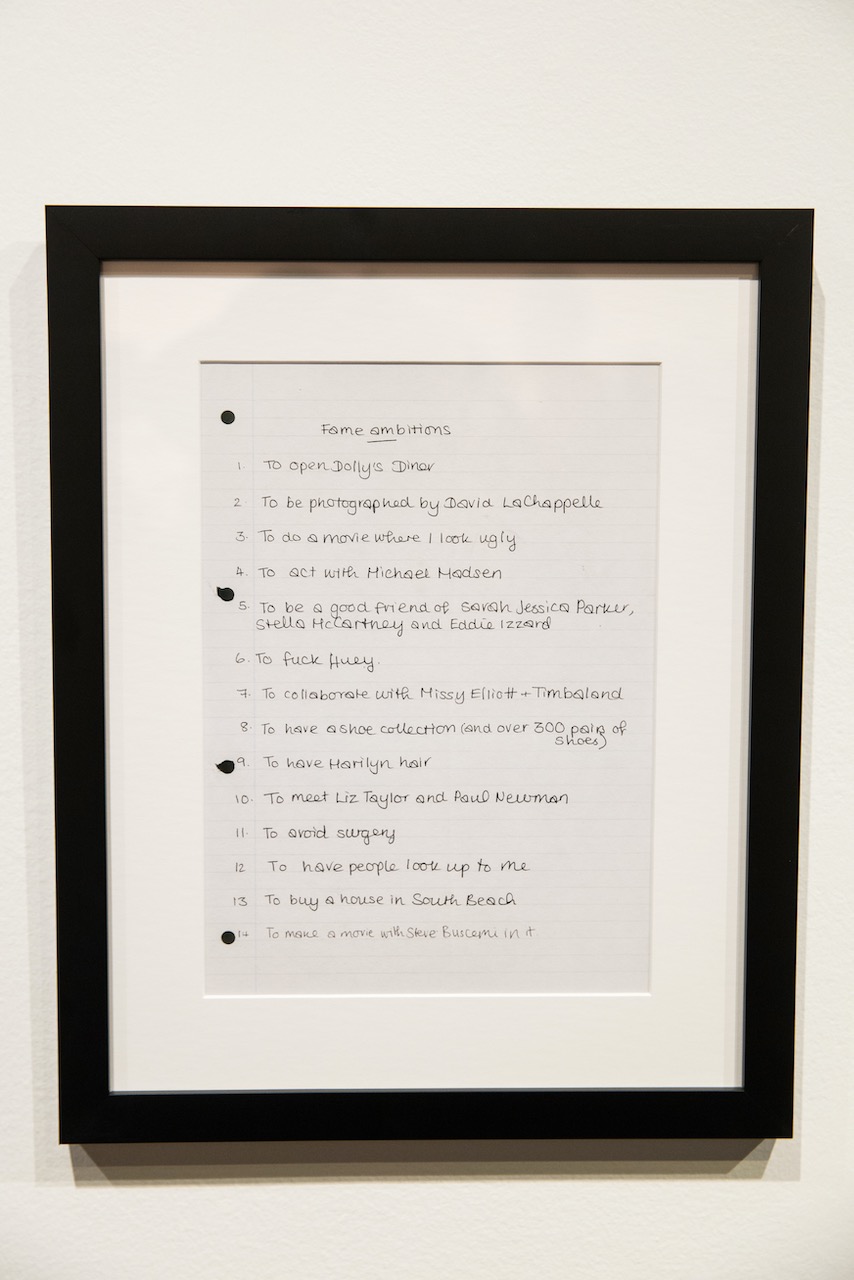 Fame ambitions
1. To open Dolly's Diner
2 To be photographed by David LaChappelle
3. To do a movie where I look ugly
4. To act with Michael Madsen
5. To be a good friend of Sarah Jessica Parker,
Stella McCartney and Eddie Izzard
6. To fuck Huey.
7. To collaborate with Missy Elliott + Timbaland
8. To have a shoe collection (and over 300 pairs of
shoes)
9. To have Marilyn hair
10. To meet Liz Taylor and Paul Newman
11. To avoid surgery
12 To have people look up to me
13 To buy a house in South Beach
14 To make a movie with Steve Buscemi in it